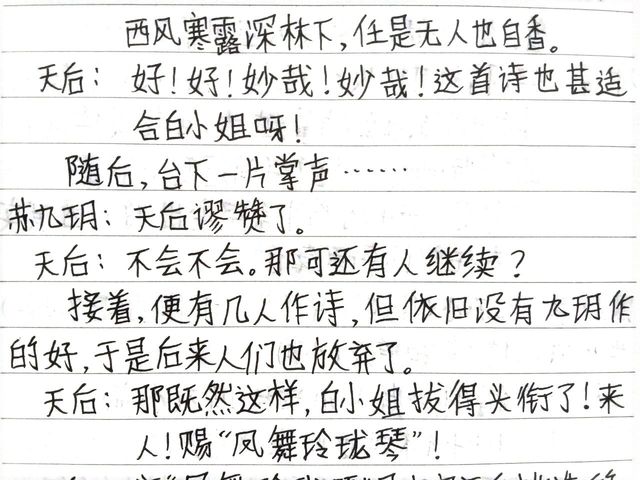 西风寒露深林下,任是无人也自香。
天后:好!好!妙哉!妙哉!这首诗也甚适
合白小姐呀!
随后,台下一片掌声……
苏九玥:天后谬赞了。
天后:不会不会。那可还有人继续?
接着,便有几人作诗,但依旧没有九玥作
的好,于是后来人们也放弃了。
天后:那既然这样,白小姐拔得头衔了!来
人!赐“凤舞玲珑琴”!